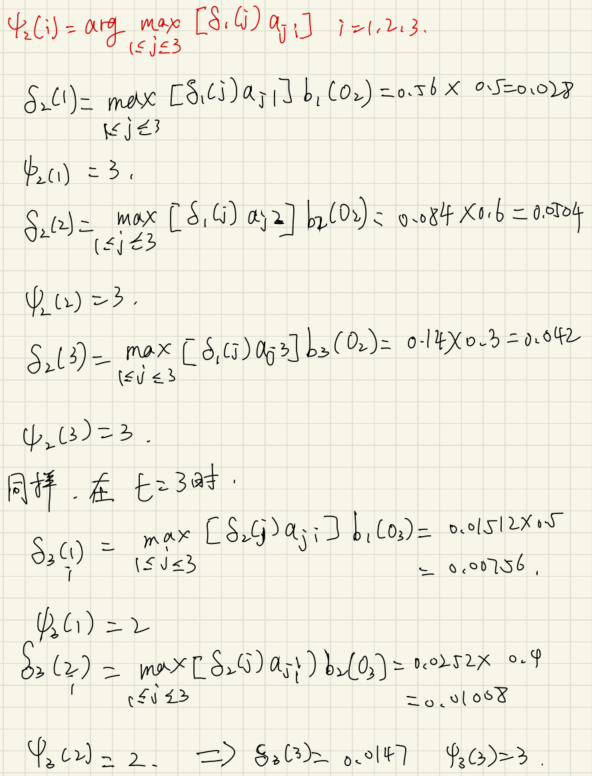 ψ₂(i) = arg max [δ₁(j) aⱼᵢ] i=1,2,3.
1≤j≤3
δ₂(1) = max [δ₁(j) aⱼ₁] b₁(O₂) = 0.56 × 0.5 = 0.028
1≤j≤3
ψ₂(1) = 3.
δ₂(2) = max [δ₁(j) aⱼ₂] b₂(O₂) = 0.084 × 0.6 = 0.0504
1≤j≤3
ψ₂(2) = 3.
δ₂(3) = max [δ₁(j) aⱼ₃] b₃(O₂) = 0.14 × 0.3 = 0.042
1≤j≤3
ψ₂(3) = 3.
同样.在 t=3时.
δ₃(1) = max [δ₂(j) aⱼᵢ] b₁(O₃) = 0.01512×0.5
i 1≤j≤3 = 0.00756.
ψ₃(1) = 2
δ₃(2) = max [δ₂(j) aⱼᵢ) b₂[O₃] = 0.0252× 0.4
i 1≤j≤3 = 0.01008
ψ₃(2) = 2. ⇒ δ₃(3) = 0.0147 ψ₃(3)=3.